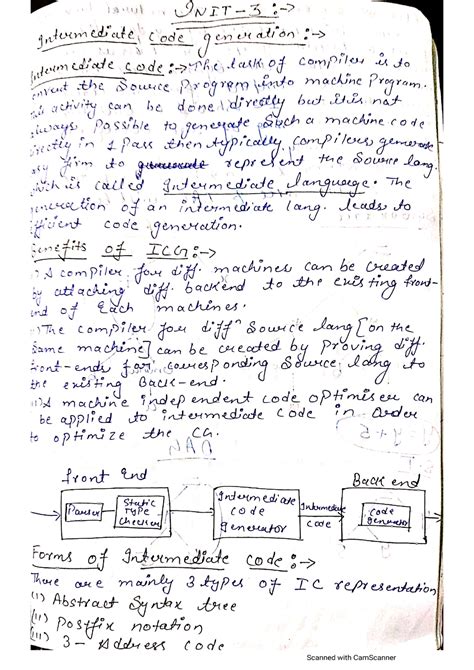 UNIT-3:->
Intermediate Code generation:->
Intermediate Code:-> The task of compiler is to
convert the Source Program into machine Program.
This activity can be done directly but it is not
always Possible to generate Such a machine code
directly in 1 Pass then typically compilers generate
easy firm to represent the Source lang.
which is called Intermediate language. The
generation of an intermediate lang. leads to
efficient code generation.
Benefits of ICG:->
i) A compiler for diff. machines can be created
by attaching diff. backend to the existing front-
end of each machines.
ii) The compiler for diff^n Source lang [on the
same machine] can be created by proving diff.
front-ends for corresponding Source lang to
the existing Back-end.
iii) A machine independent code optimiser can
be applied to intermediate code in order
to optimize the CG.
front End
Back end
Parser
Static Type Checker
Intermediate code Generator
Intermediate code
Code Generator
Forms of Intermediate code:->
There are mainly 3 types of IC representation
(i) Abstract Syntax tree
(ii) Postfix notation
(iii) 3-Address code
Scanned with CamScanner